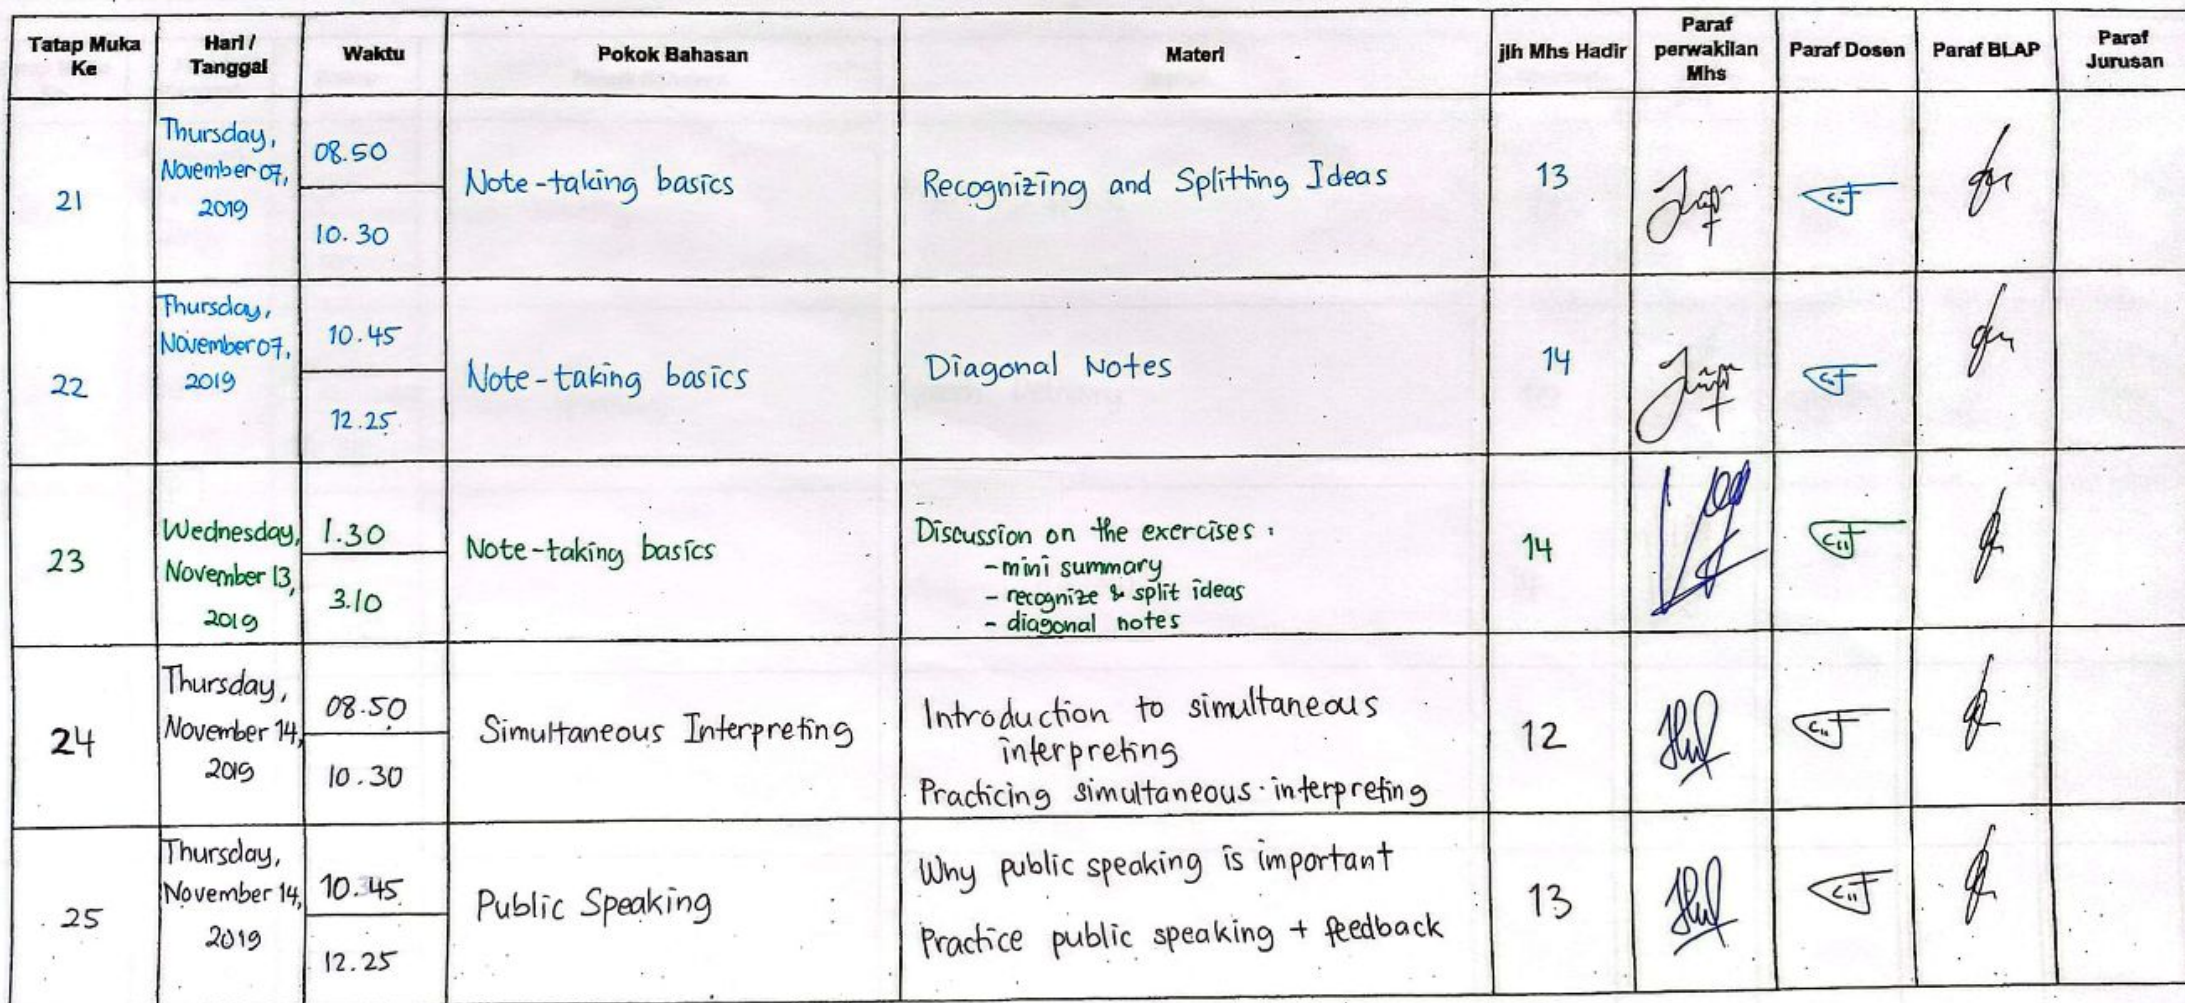 Tatap Muka Ke
Hari / Tanggal
Waktu
Pokok Bahasan
Materi
jlh Mhs Hadir
Paraf perwakilan Mhs
Paraf Dosen
Paraf BLAP
Paraf Jurusan
21
Thursday,
November 07,
2019
08.50
10.30
Note-taking basics
Recognizing and Splitting Ideas
13
22
Thursday,
November 07,
2019
10.45
12.25
Note-taking basics
Diagonal Notes
14
23
Wednesday,
November 13,
2019
1.30
3.10
Note-taking basics
Discussion on the exercises :
- mini summary
- recognize & split ideas
- diagonal notes
14
24
Thursday,
November 14,
2019
08.50
10.30
Simultaneous Interpreting
Introduction to simultaneous
interpreting
Practicing simultaneous interpreting
12
25
Thursday,
November 14,
2019
10.45
12.25
Public Speaking
Why public speaking is important
Practice public speaking + feedback
13